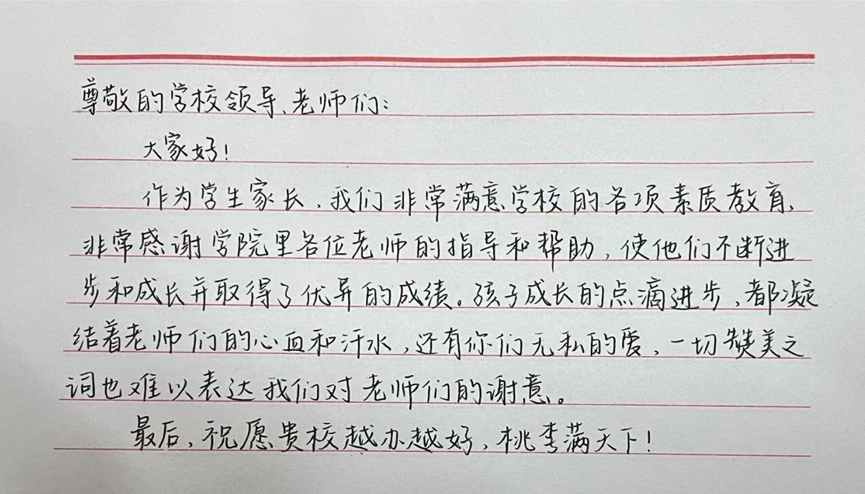 尊敬的学校领导、老师们:
大家好!
作为学生家长,我们非常满意学校的各项素质教育,
非常感谢学院里各位老师的指导和帮助,使他们不断进
步和成长并取得了优异的成绩。孩子成长的点滴进步,都凝
结着老师们的心血和汗水,还有你们无私的爱,一切赞美之
词也难以表达我们对老师们的谢意。
最后,祝愿贵校越办越好,桃李满天下!